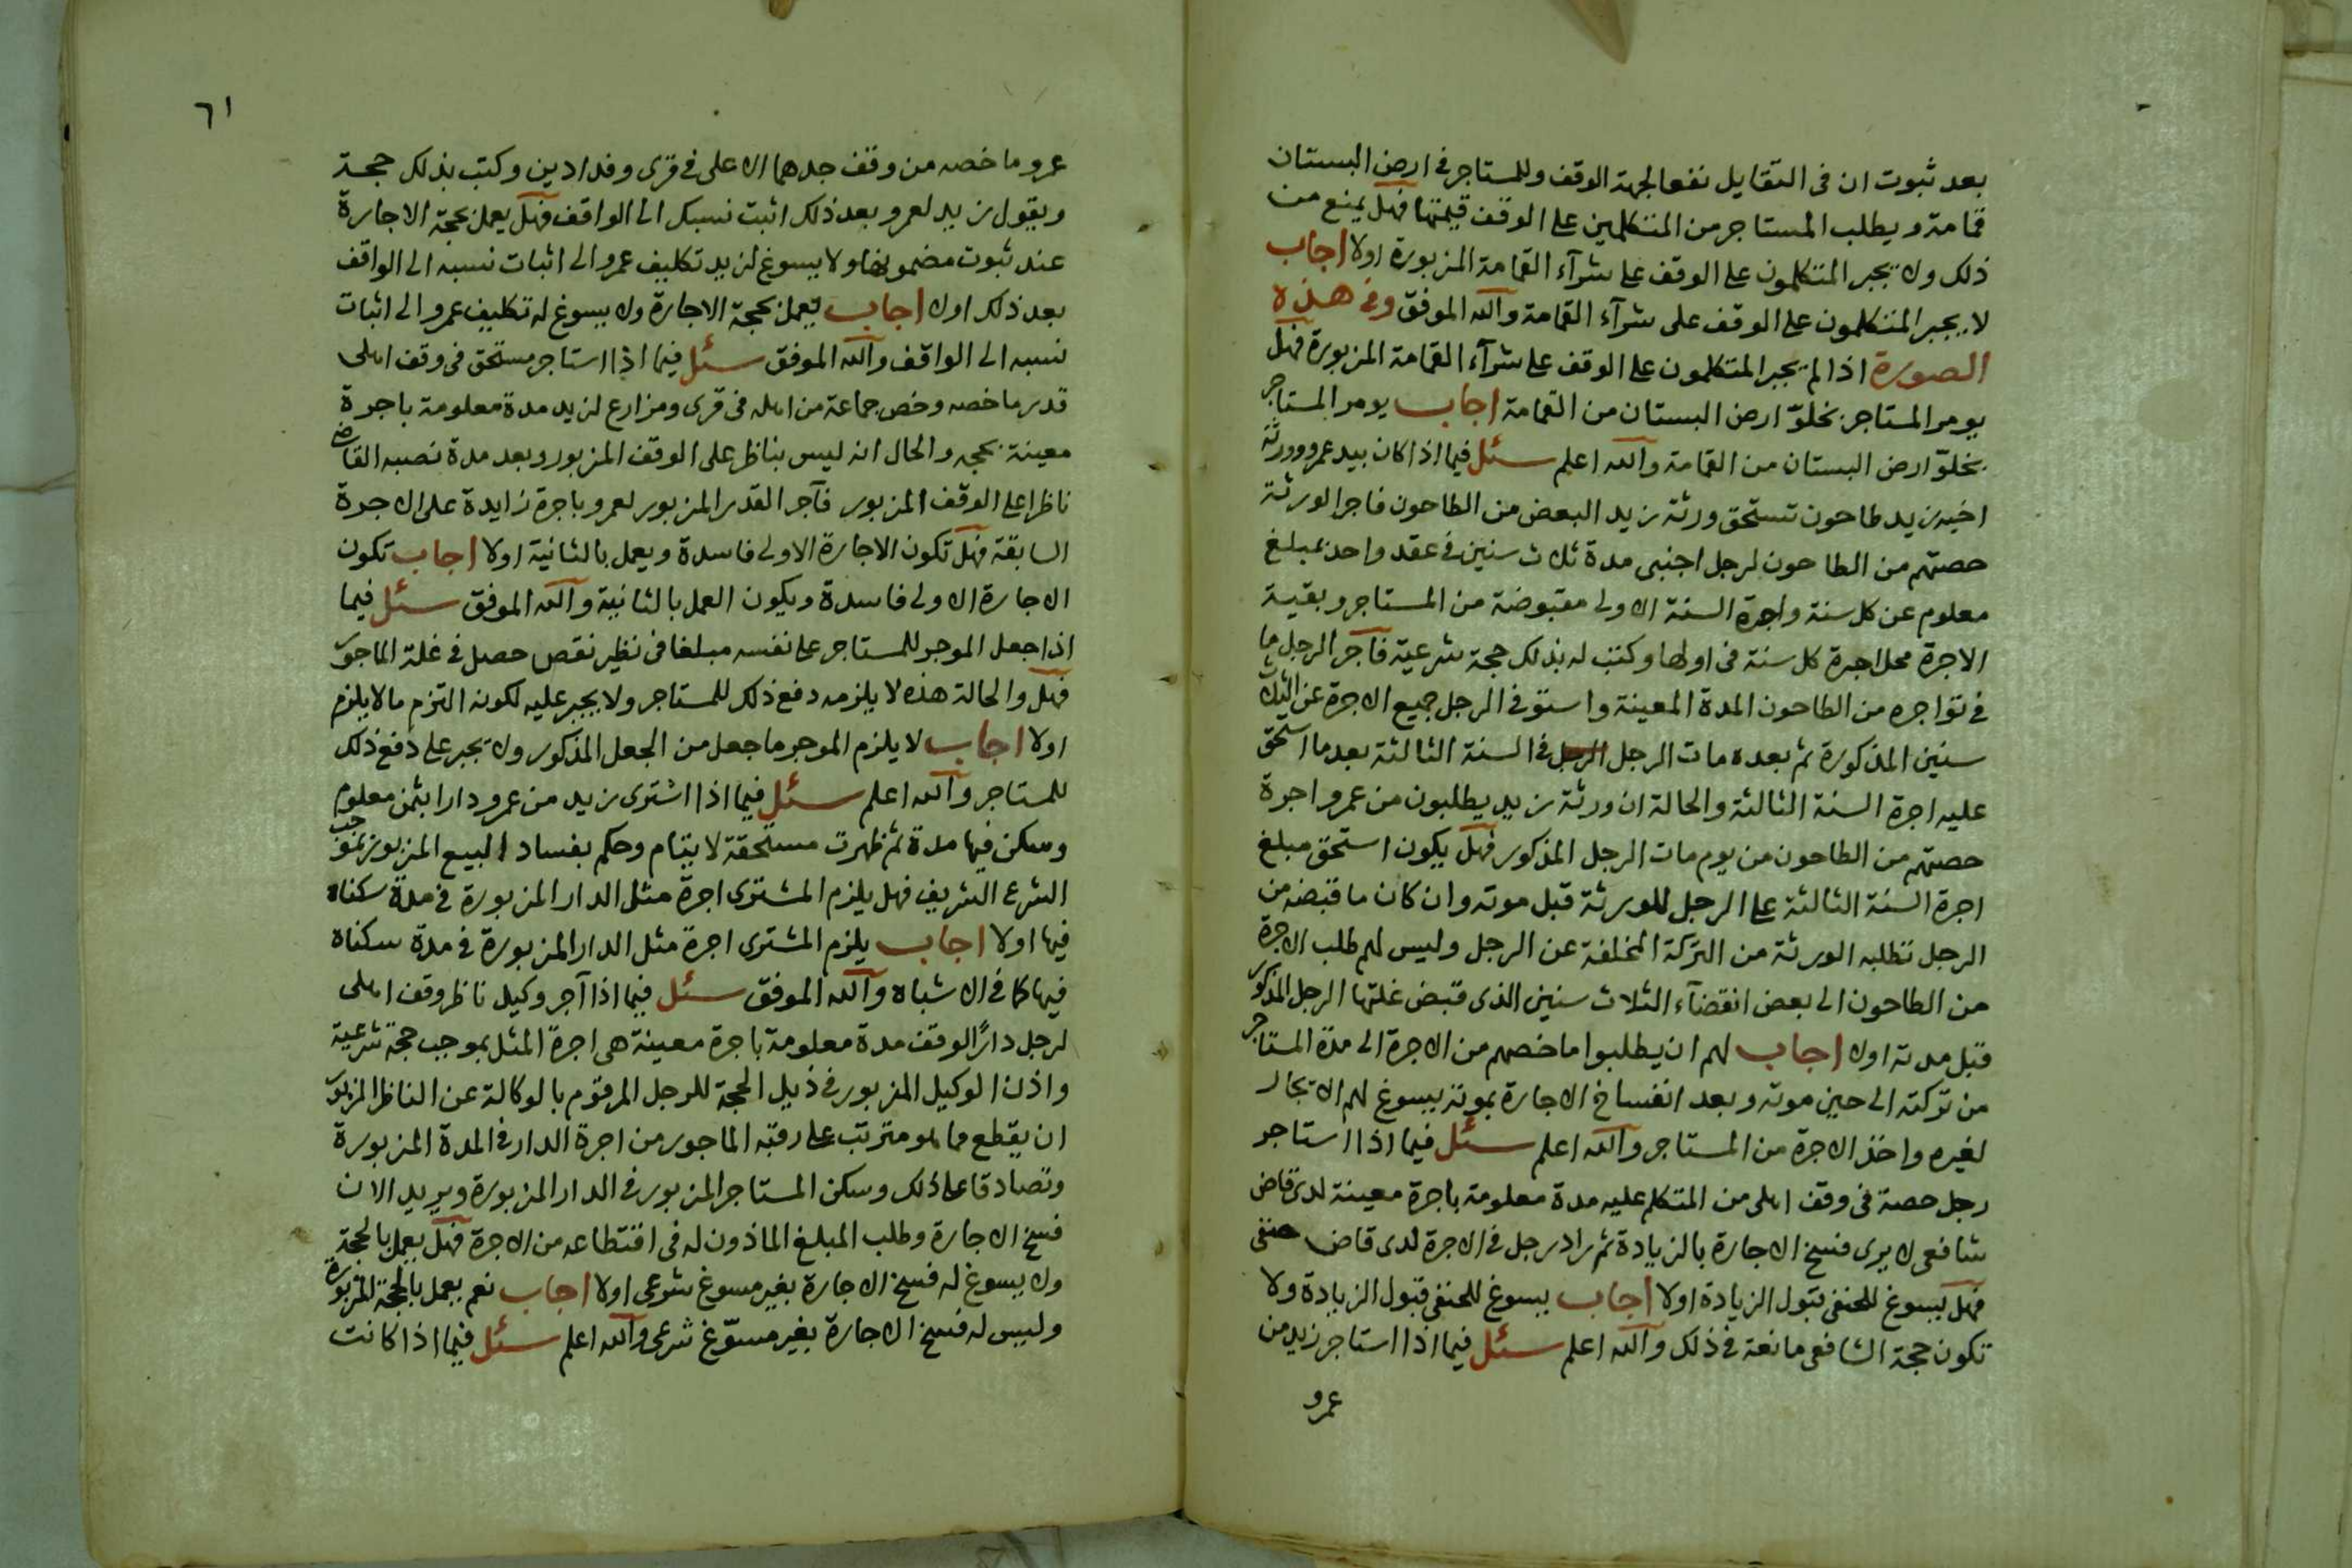 بعد ثبوت ان فى التقايل نفعا لجهة الوقف وللمستاجر فى ارض البستان
قمامة ويطلب المستاجر من المتكلمين على الوقف قيمتها فهل يمنع من
ذلك ولا يجبر المتكلمون على الوقف على شرآء القمامة المزبورة اولا اجاب
لا يجبر المتكلمون على الوقف على شرآء القمامة والله الموفق وفى هذه
الصورة اذا لم يجبر المتكلمون على الوقف على شرآء القمامة المزبورة فهل
يومر المستاجر بخلوّ ارض البستان من القمامة اجاب يومر المستاجر
بخلوّ ارض البستان من القمامة والله اعلم سئل فيما اذا كان بيد عمرو وورثة
اخيه زيد طاحون تستحق ورثة زيد البعض من الطاحون فاجر الورثة
حصتهم من الطاحون لرجل اجنبى مدة ثلاث سنين فى عقد واحد بمبلغ
معلوم عن كل سنة واجرة السنة الاولى مقبوضة من المستاجر وبقية
الاجرة محل اجرة كل سنة فى اولها وكتب له بذلك حجة شرعية فآجر الرجل ما
فى تواجره من الطاحون المدة المعينة واستوفى الرجل جميع الاجرة عن الثلاث
سنين المذكورة ثم بعده مات الرجل الرجل فى السنة الثالثة بعد ما استحق
عليه اجرة السنة الثالثة والحالة ان ورثة زيد يطلبون من عمرو اجرة
حصتهم من الطاحون من يوم مات الرجل المذكور فهل يكون استحق مبلغ
اجرة السنة الثالثة على الرجل للورثة قبل موته وان كان ما قبضه من
الرجل تطلبه الورثة من التركة المخلفة عن الرجل وليس لهم طلب الاجرة
من الطاحون الى بعض انقضآء الثلاث سنين الذى قبض غلتها الرجل المذكور
قبل مدته اولا اجاب لهم ان يطلبوا ما خصهم من الاجرة الى مدة المستاجر
من تركته الى حين موته وبعد انفساخ الاجارة بموته يسوغ لهم الايجار
لغيره واخذ الاجرة من المستاجر والله اعلم سئل فيما اذا استاجر
رجل حصة فى وقف اهلى من المتكلم عليه مدة معلومة باجرة معينة لدى قاض
شافعى لا يرى فسخ الاجارة بالزيادة ثم زاد رجل فى الاجرة لدى قاض حنفى
فهل يسوغ للحنفى قبول الزيادة اولا اجاب يسوغ للحنفى قبول الزيادة ولا
تكون حجة الشافعى مانعة فى ذلك والله اعلم سئل فيما اذا استاجر زيد من
عمرو
٦١
عمرو ما خصه من وقف جدهما الاعلى فى قرى وفدادين وكتب بذلك حجة
ويقول زيد لعمرو بعد ذلك اثبت نسبك الى الواقف فهل يعمل بحجة الاجارة
عند ثبوت مضمونها ولا يسوغ لزيد تكليف عمرو الى اثبات نسبه الى الواقف
بعد ذلك اولا اجاب يعمل بحجة الاجارة ولا يسوغ له تكليف عمرو الى اثبات
نسبه الى الواقف والله الموفق سئل فيما اذا استاجر مستحق فى وقف اهلى
قدر ما خصه وخص جماعة من اهله فى قرى ومزارع لزيد مدة معلومة باجرة
معينة بحجه والحال انه ليس بناظر على الوقف المزبور وبعد مدة نصبه القاضى
ناظرا على الوقف المزبور فآجر القدر المزبور لعمرو باجرة زايدة على الاجرة
السابقة فهل تكون الاجارة الاولى فاسدة ويعمل بالثانية اولا اجاب تكون
الاجارة الاولى فاسدة ويكون العمل بالثانية والله الموفق سئل فيما
اذا جعل الموجر للمستاجر على نفسه مبلغا فى نظير نقص حصل فى غلة الماجور
فهل والحالة هذه لا يلزمه دفع ذلك للمستاجر ولا يجبر عليه لكونه التزم ما لا يلزم
اولا اجاب لا يلزم الموجر ما جعل من الجعل المذكور ولا يجبر على دفع ذلك
للمستاجر والله اعلم سئل فيما اذا اشترى زيد من عمرو دارا بثمن معلوم
وسكن فيها مدة ثم ظهرت مستحقة لايتام وحكم بفساد البيع المزبور بموجب
الشرع الشريف فهل يلزم المشترى اجرة مثل الدار المزبورة فى مدة سكناه
فيها اولا اجاب يلزم المشترى اجرة مثل الدار المزبورة فى مدة سكناه
فيها كما فى الاشباه والله الموفق سئل فيما اذا آجر وكيل ناظر وقف اهلى
لرجل دارًا لوقف مدة معلومة باجرة معينة هى اجرة المثل بموجب حجة شرعية
واذن الوكيل المزبور فى ذيل الحجة للرجل المرقوم بالوكالة عن الناظر المزبور
ان يقطع مما هو مترتب على رقبة الماجور من اجرة الدار فى المدة المزبورة
وتصادقا على ذلك وسكن المستاجر المزبور فى الدار المزبورة ويريد الان
فسخ الاجارة وطلب المبلغ الماذون له فى اقتطاعه من الاجرة فهل يعمل بالحجة
ولا يسوغ له فسخ الاجارة بغير مسوغ شرعى اولا اجاب نعم يعمل بالحجة المزبورة
وليس له فسخ الاجارة بغير مسوّغ شرعى والله اعلم سئل فيما اذا كانت